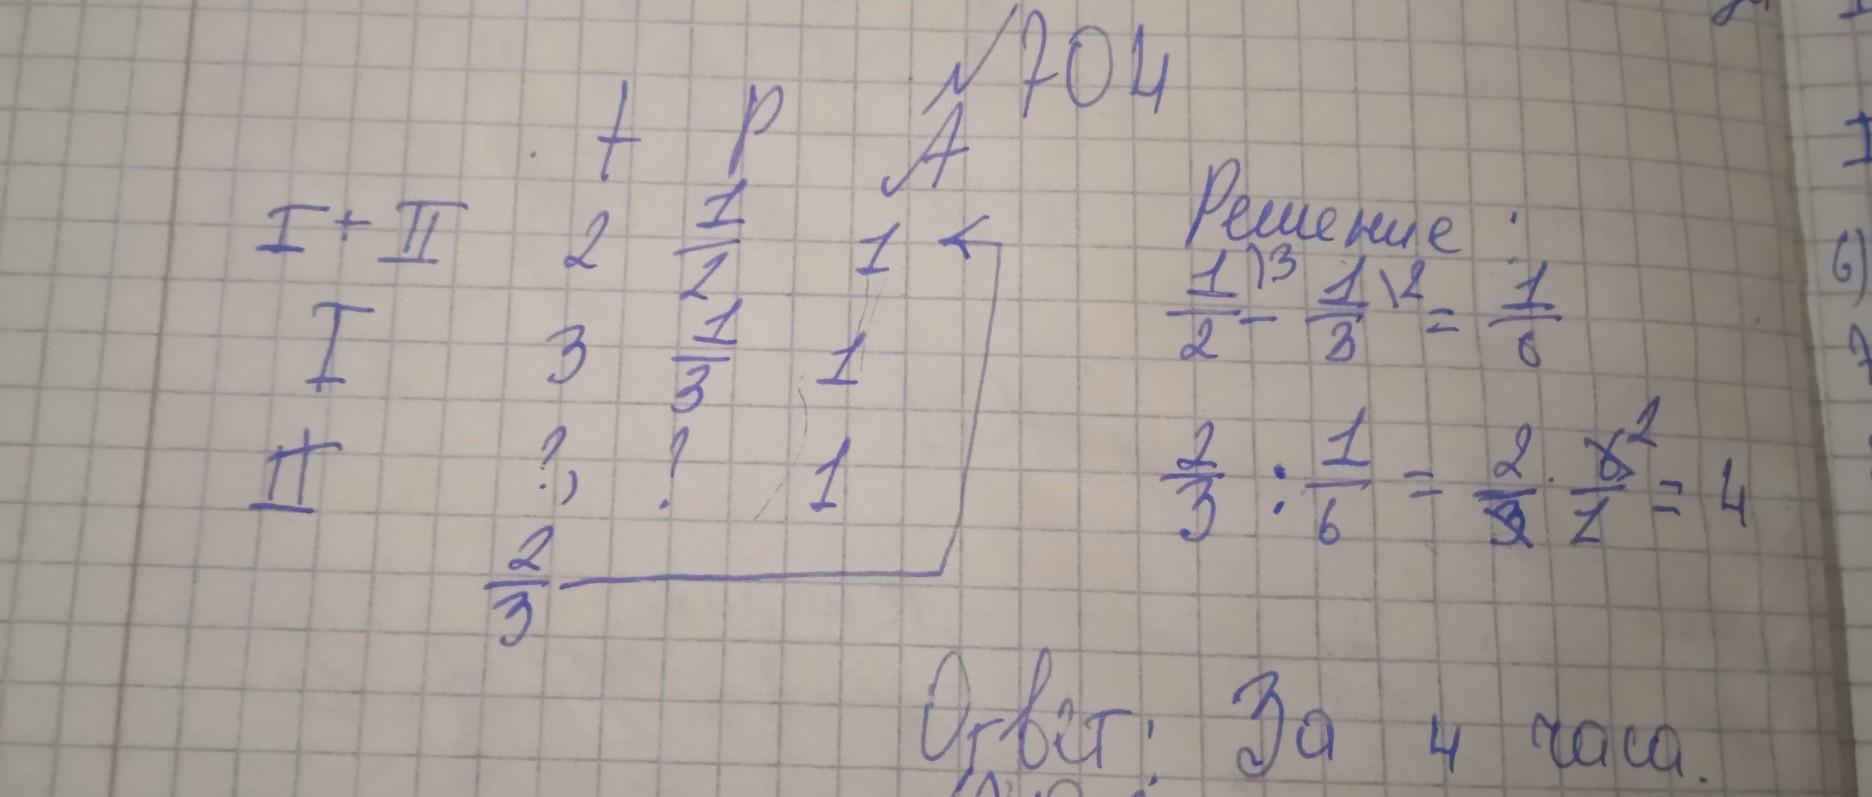 №704
t P A
I + II 2 1/2 1
I 3 1/3 1
II ?, ? 1
2/3
Решение:
1/2\3 - 1/3\2 = 1/6
2/3 : 1/6 = 2/3 · 6 2/1 = 4
Ответ: За 4 часа.
6)